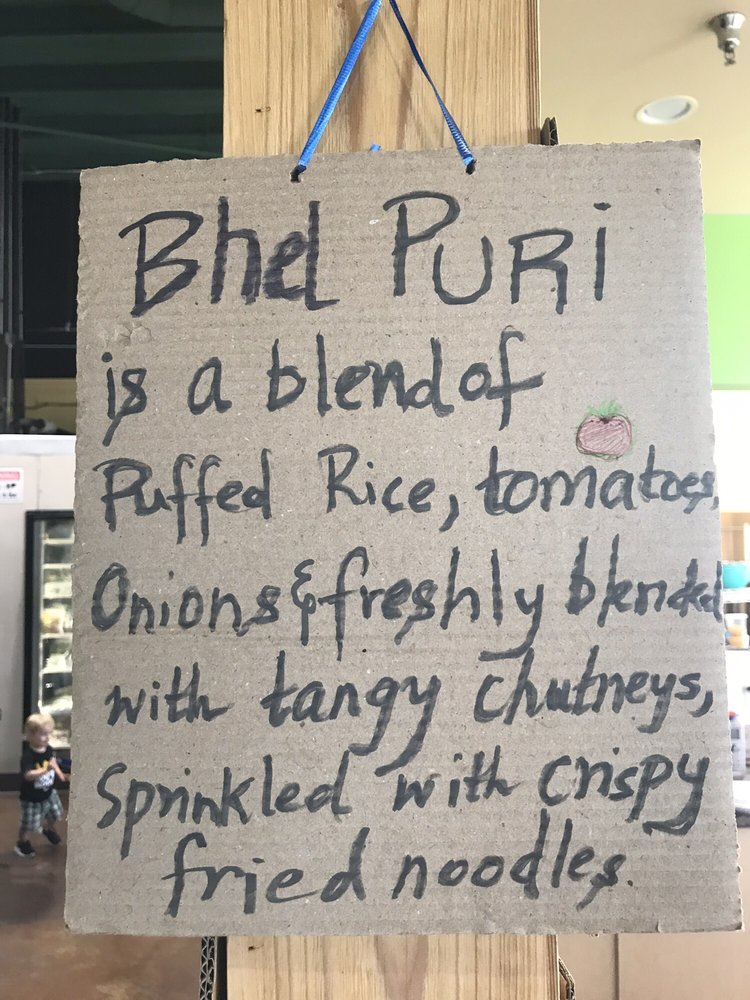 Bhel PURi
is a blend of
Puffed Rice, tomatoes,
Onions & freshly blended
with tangy chutneys,
Sprinkled with crispy
fried noodles.